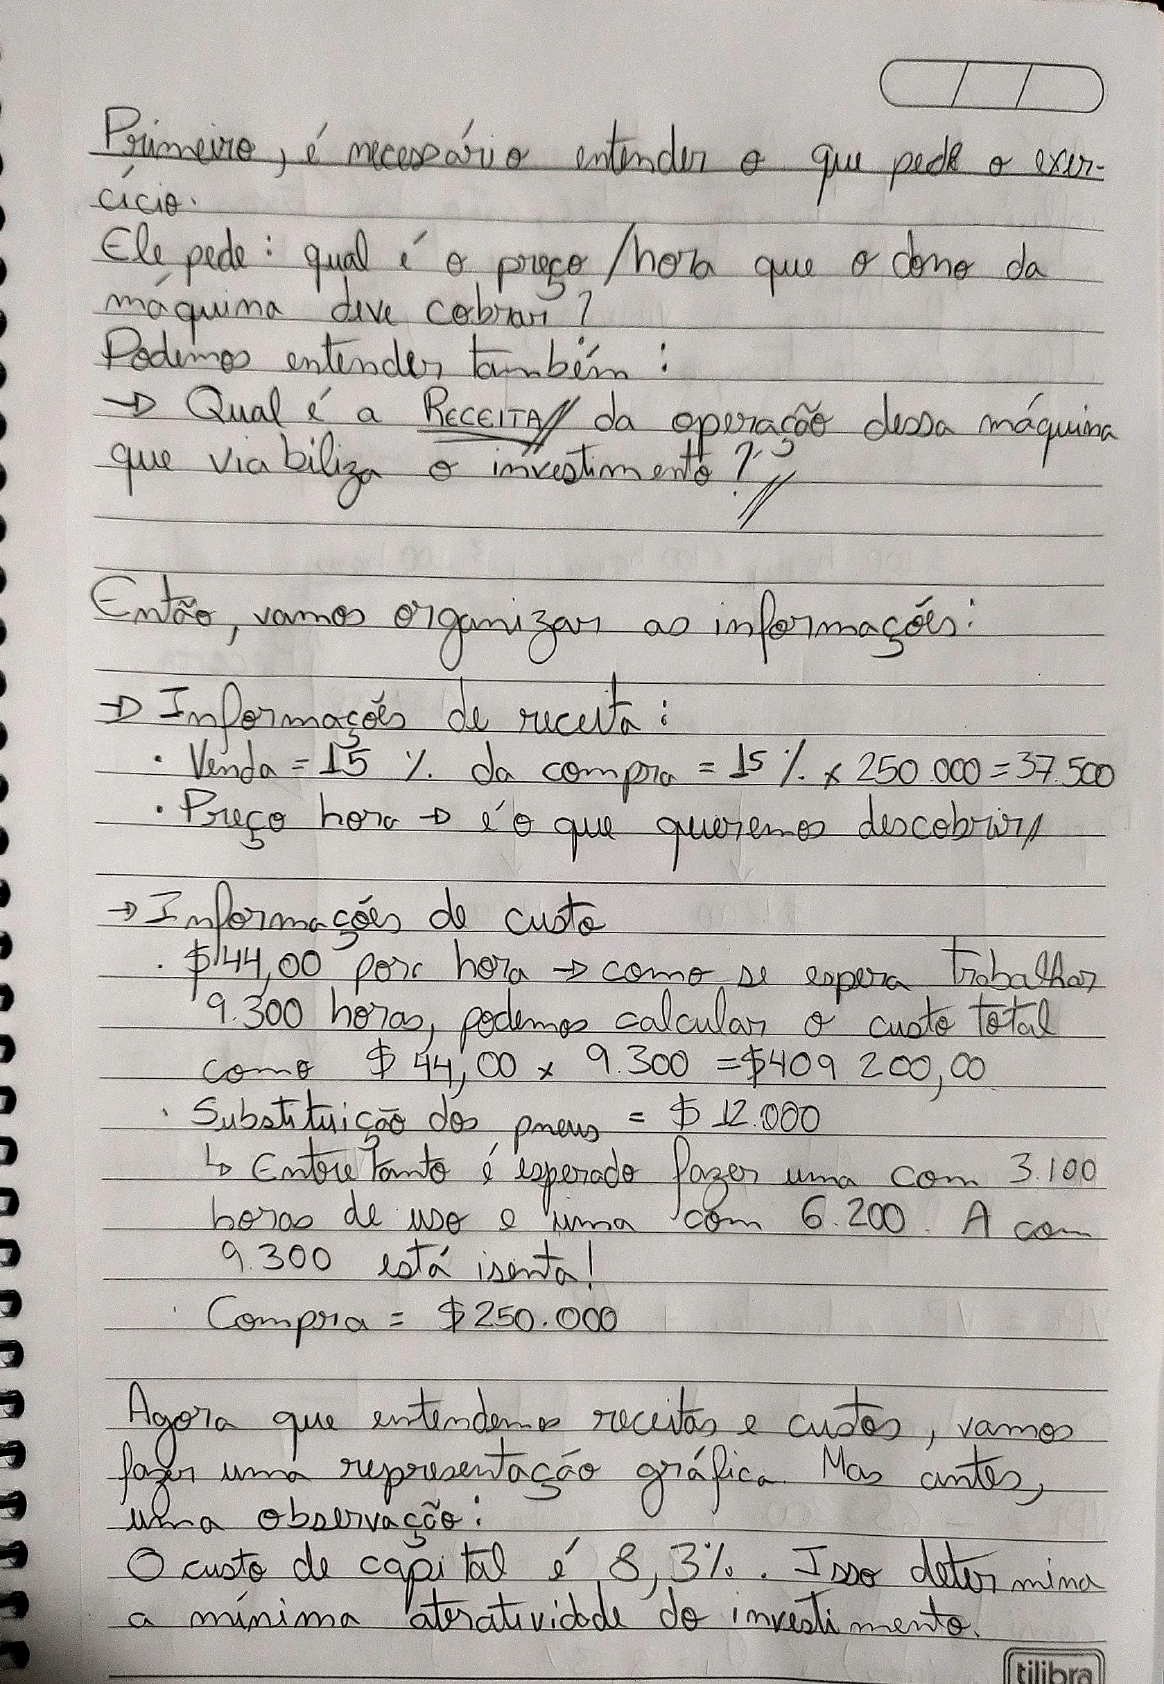 Primeiro, é necessário entender o que pede o exer-
cício.
Ele pede: qual é o preço/hora que o dono da
máquina deve cobrar?
Podemos entender também:
→ Qual é a RECEITA// da operação dessa máquina
que viabiliza o investimento?
Então, vamos organizar as informações:
→ Informações de receita:
· Venda = 15 % da compra = 15 % x 250 000 = 37.500
· Preço hora → é o que queremos descobrir//
→ Informações de custo
· $ 44,00 por hora → como se espera trabalhar
9.300 horas, podemos calcular o custo total
como $ 44,00 x 9.300 = $409 200,00
· Substituição dos pneus = $ 12.000
↳ Entretanto é esperado fazer uma com 3.100
horas de uso e uma com 6.200. A com
9.300 está isenta!
· Compra = $250.000
Agora que entendemos receitas e custos, vamos
fazer uma representação gráfica. Mas antes,
uma observação:
O custo de capital é 8,3%. Isso determina
a mínima ateratividade do investimento.
tilibra